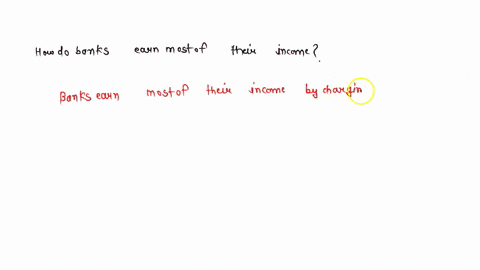 How do banks earn most of their income?
Banks earn most of their income by chargin